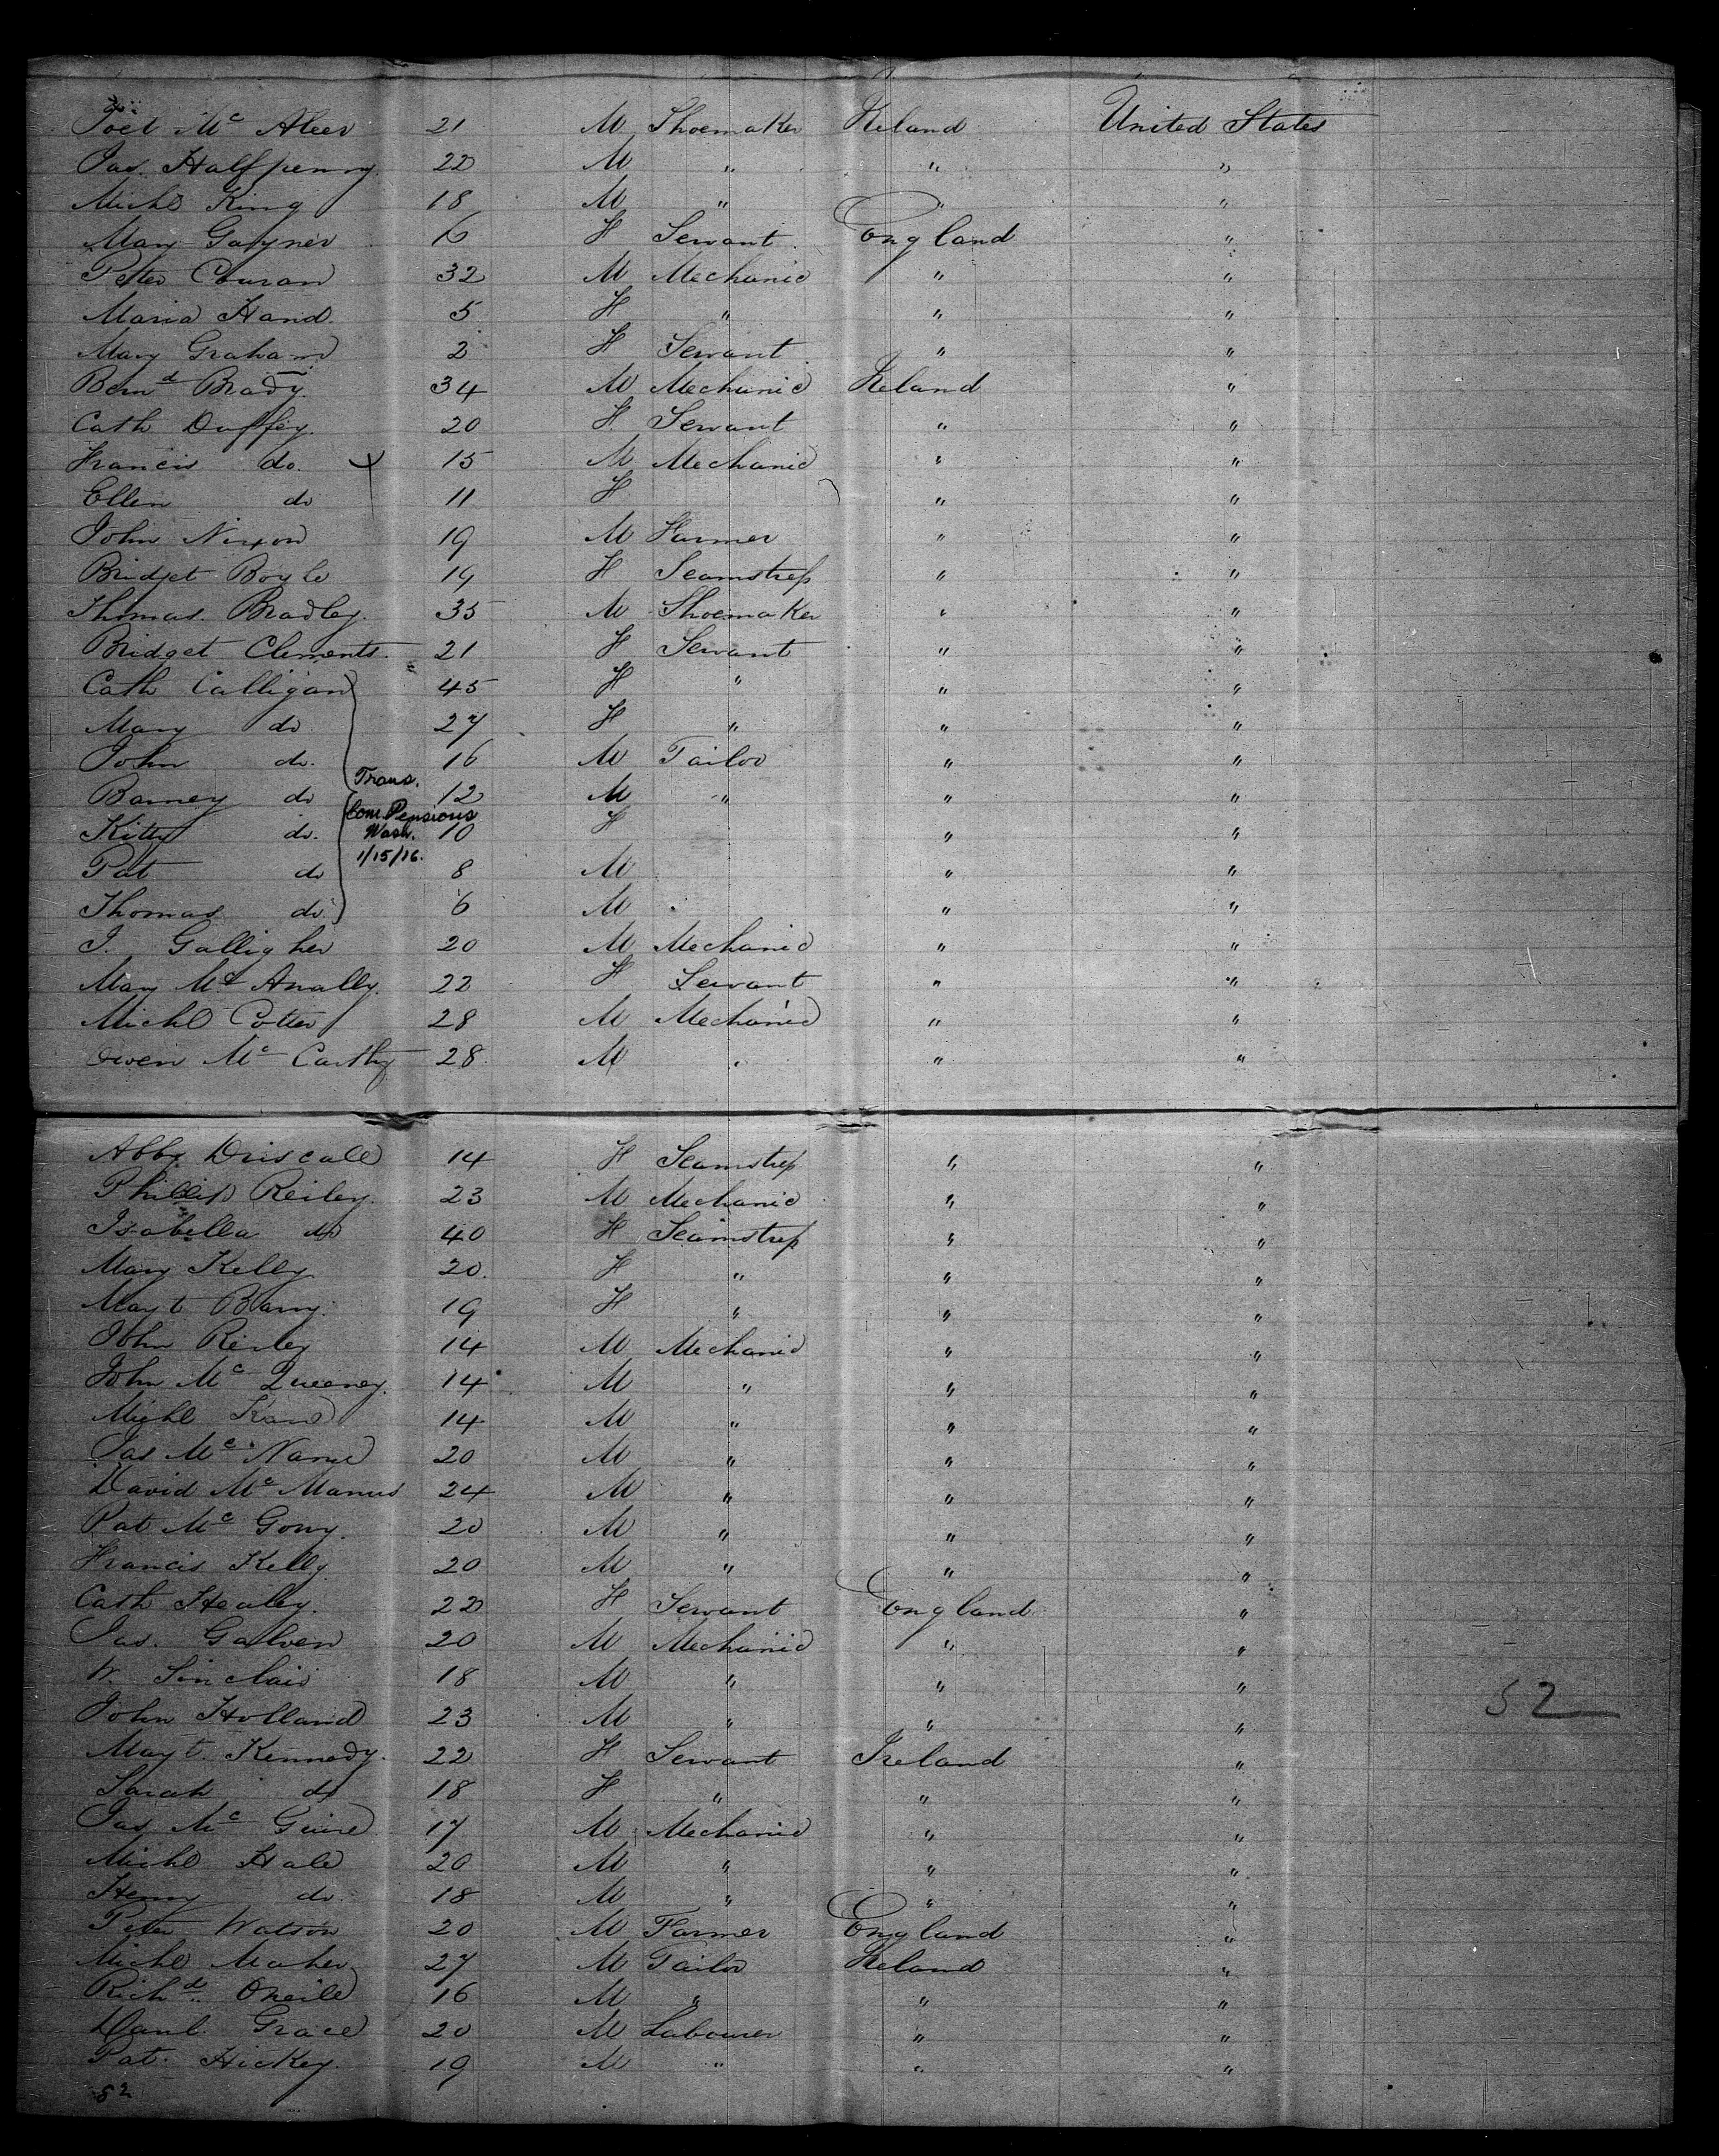 Joel Mc Aleer 21 M Shoemaker Ireland United States
Jas. Halfpenny. 22 M " " "
Michl King 18 M " " "
Mary Gayner 16 F Servant England "
Peter Couran 32 M Mechanic " "
Maria Hand 5 F " " "
Mary Graham 2 F Servant " "
Bernd Brady. 34 M Mechanic Ireland "
Cath Duffey. 20 F Servant " "
Francis do. 15 M Mechanic " "
Ellen do 11 F " "
John Nixon 19 M Farmer " "
Bridget Boyle 19 F Seamstress " "
Thomas. Bradley. 35 M Shoemaker " "
Bridget Clements. 21 F Servant " "
Cath Calligan 45 F " " "
Mary do 27 F " " "
John do. 16 M Tailor " "
Trans.
Barney do 12 M " " "
Com. Pensions
Kitty do. 10 F " "
Wash.
1/15/16.
Pat do 8 M " "
Thomas do. 6 M " "
J. Galligher 20 M Mechanic " "
Mary Mc Anally. 22 F Servant " "
Michl Cotter 28 M Mechanic " "
Owen Mc Carthy 28 M " " "
Abby Driscall 14 F Seamstress " "
Phillip Reiley. 23 M Mechanic " "
Isabella do 40 F Seamstress " "
Mary Kelly 20. F " " "
Mayt Barry. 19 F " " "
John Reiley 14 M Mechanic " "
John Mc Queeney. 14 M " " "
Michl Kane 14 M " " "
Jas Mc Name 20 M " " "
David Mc Manus 24 M " " "
Pat Mc Gowy. 20 M " " "
Francis Kelly. 20 M " " "
Cath Healey. 22 F Servant England "
Jas. Galven 20 M Mechanic " "
W. Sinclair 18 M " " "
52
John Holland 23 M " " "
Mayt. Kennedy. 22 F Servant Ireland "
Sarah do 18 F " " "
Jas Mc Guire 17 M Mechanic " "
Michl Hale 20 M " " "
Henry do. 18 M " " "
Peter Watson 20 M Farmer England "
Michl Maher. 27 M Tailor Ireland "
Richd. Oneile 16 M " " "
Danl. Grace 20 M Labourer " "
Pat. Hickey. 19 M " " "
52